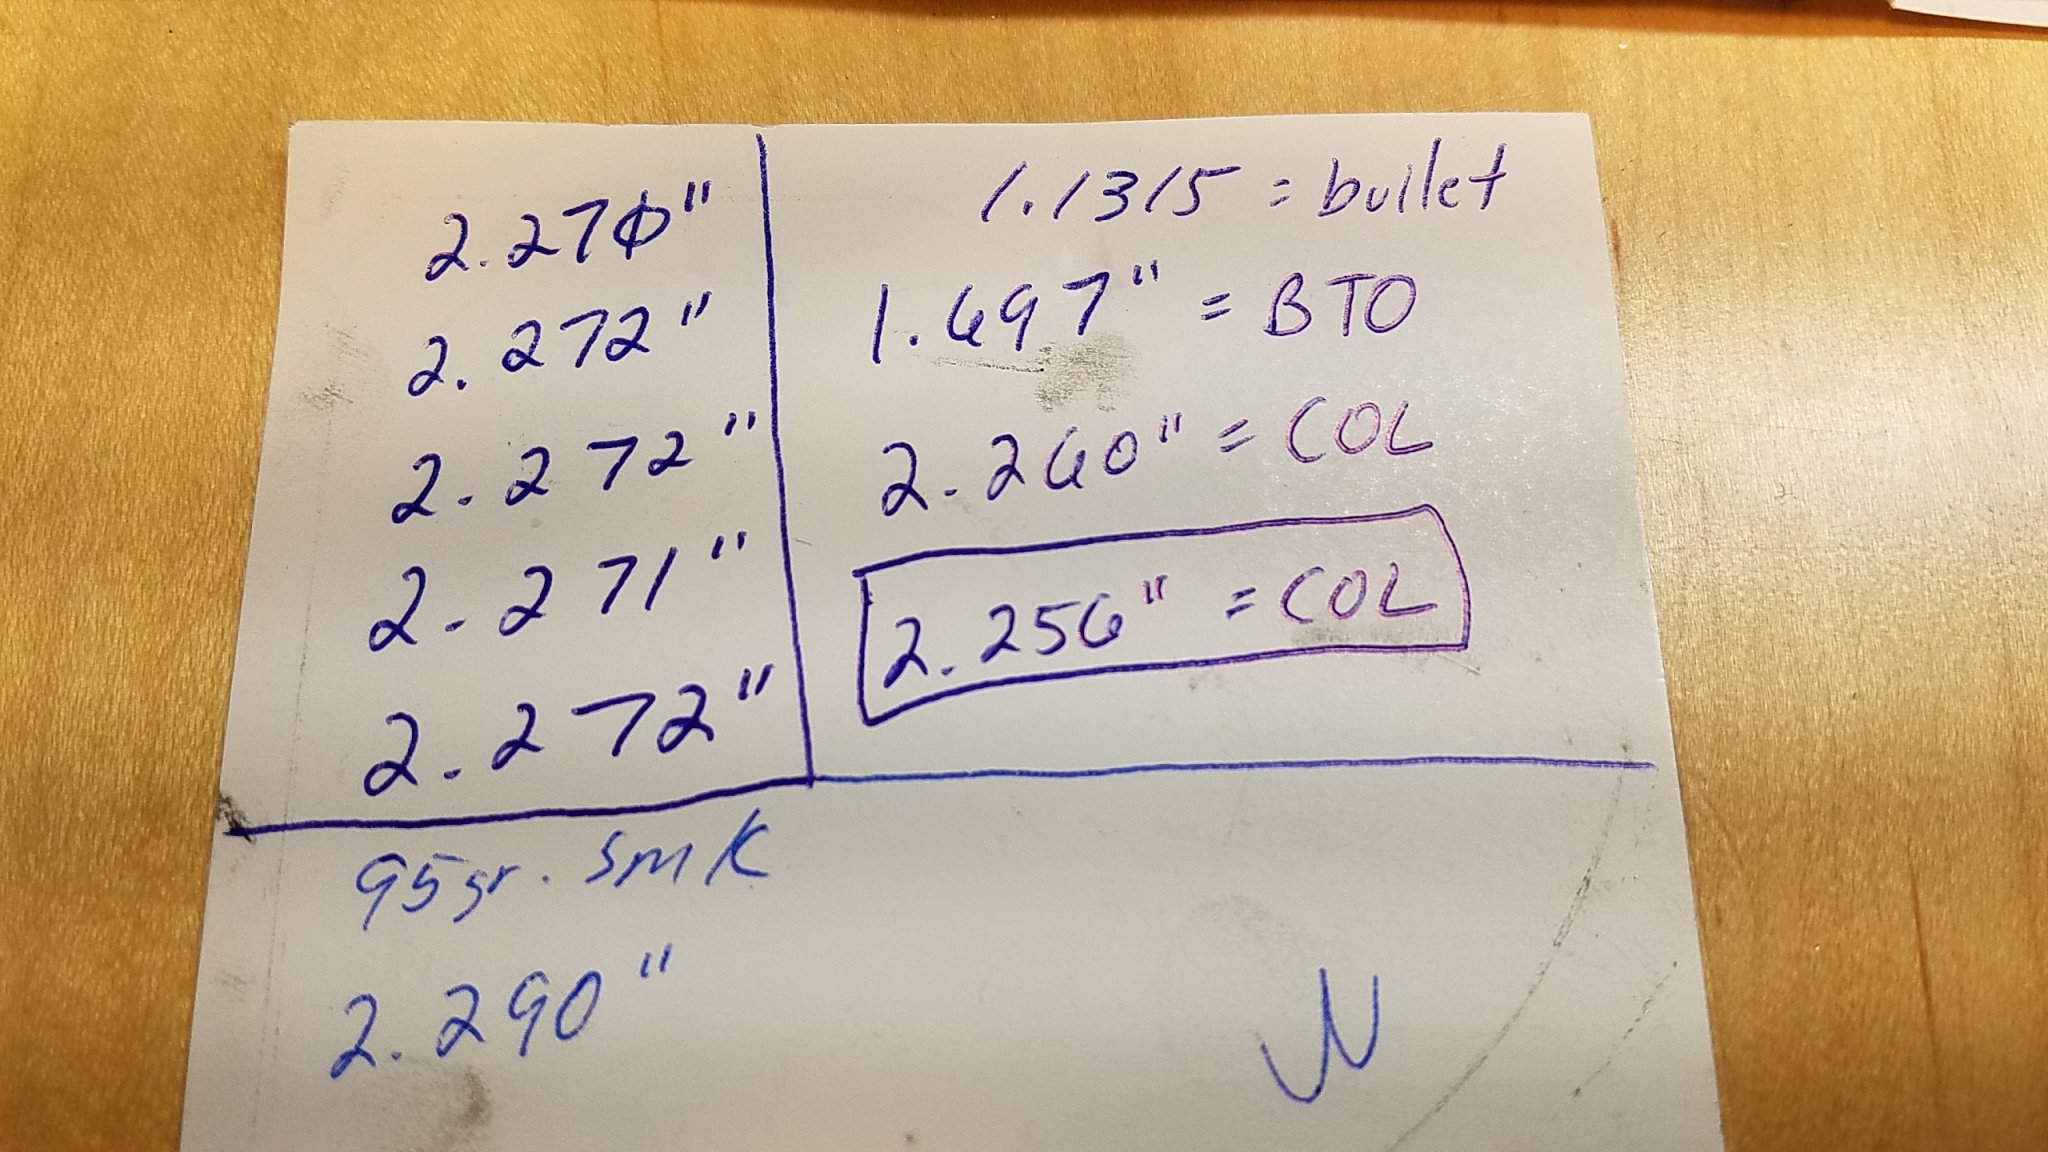 2.270"
2.272"
2.272"
2.271"
2.272"
1.1315 = bullet
1.697" = BTO
2.260" = COL
2.256" = COL
95gr. SMK
2.290"